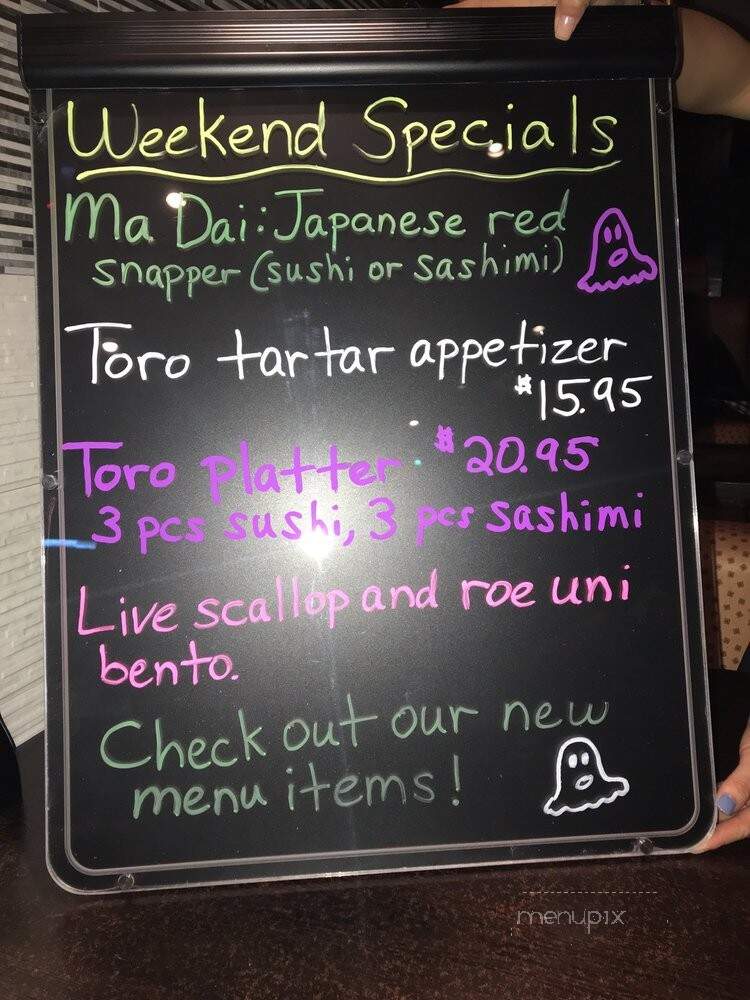 Weekend Specials
Ma Dai: Japanese red
snapper (sushi or sashimi)
Toro tartar appetizer
$15.95
Toro platter $20.95
3 pcs sushi, 3 pcs sashimi
Live scallop and roe uni
bento.
Check out our new
menu items!
menupix